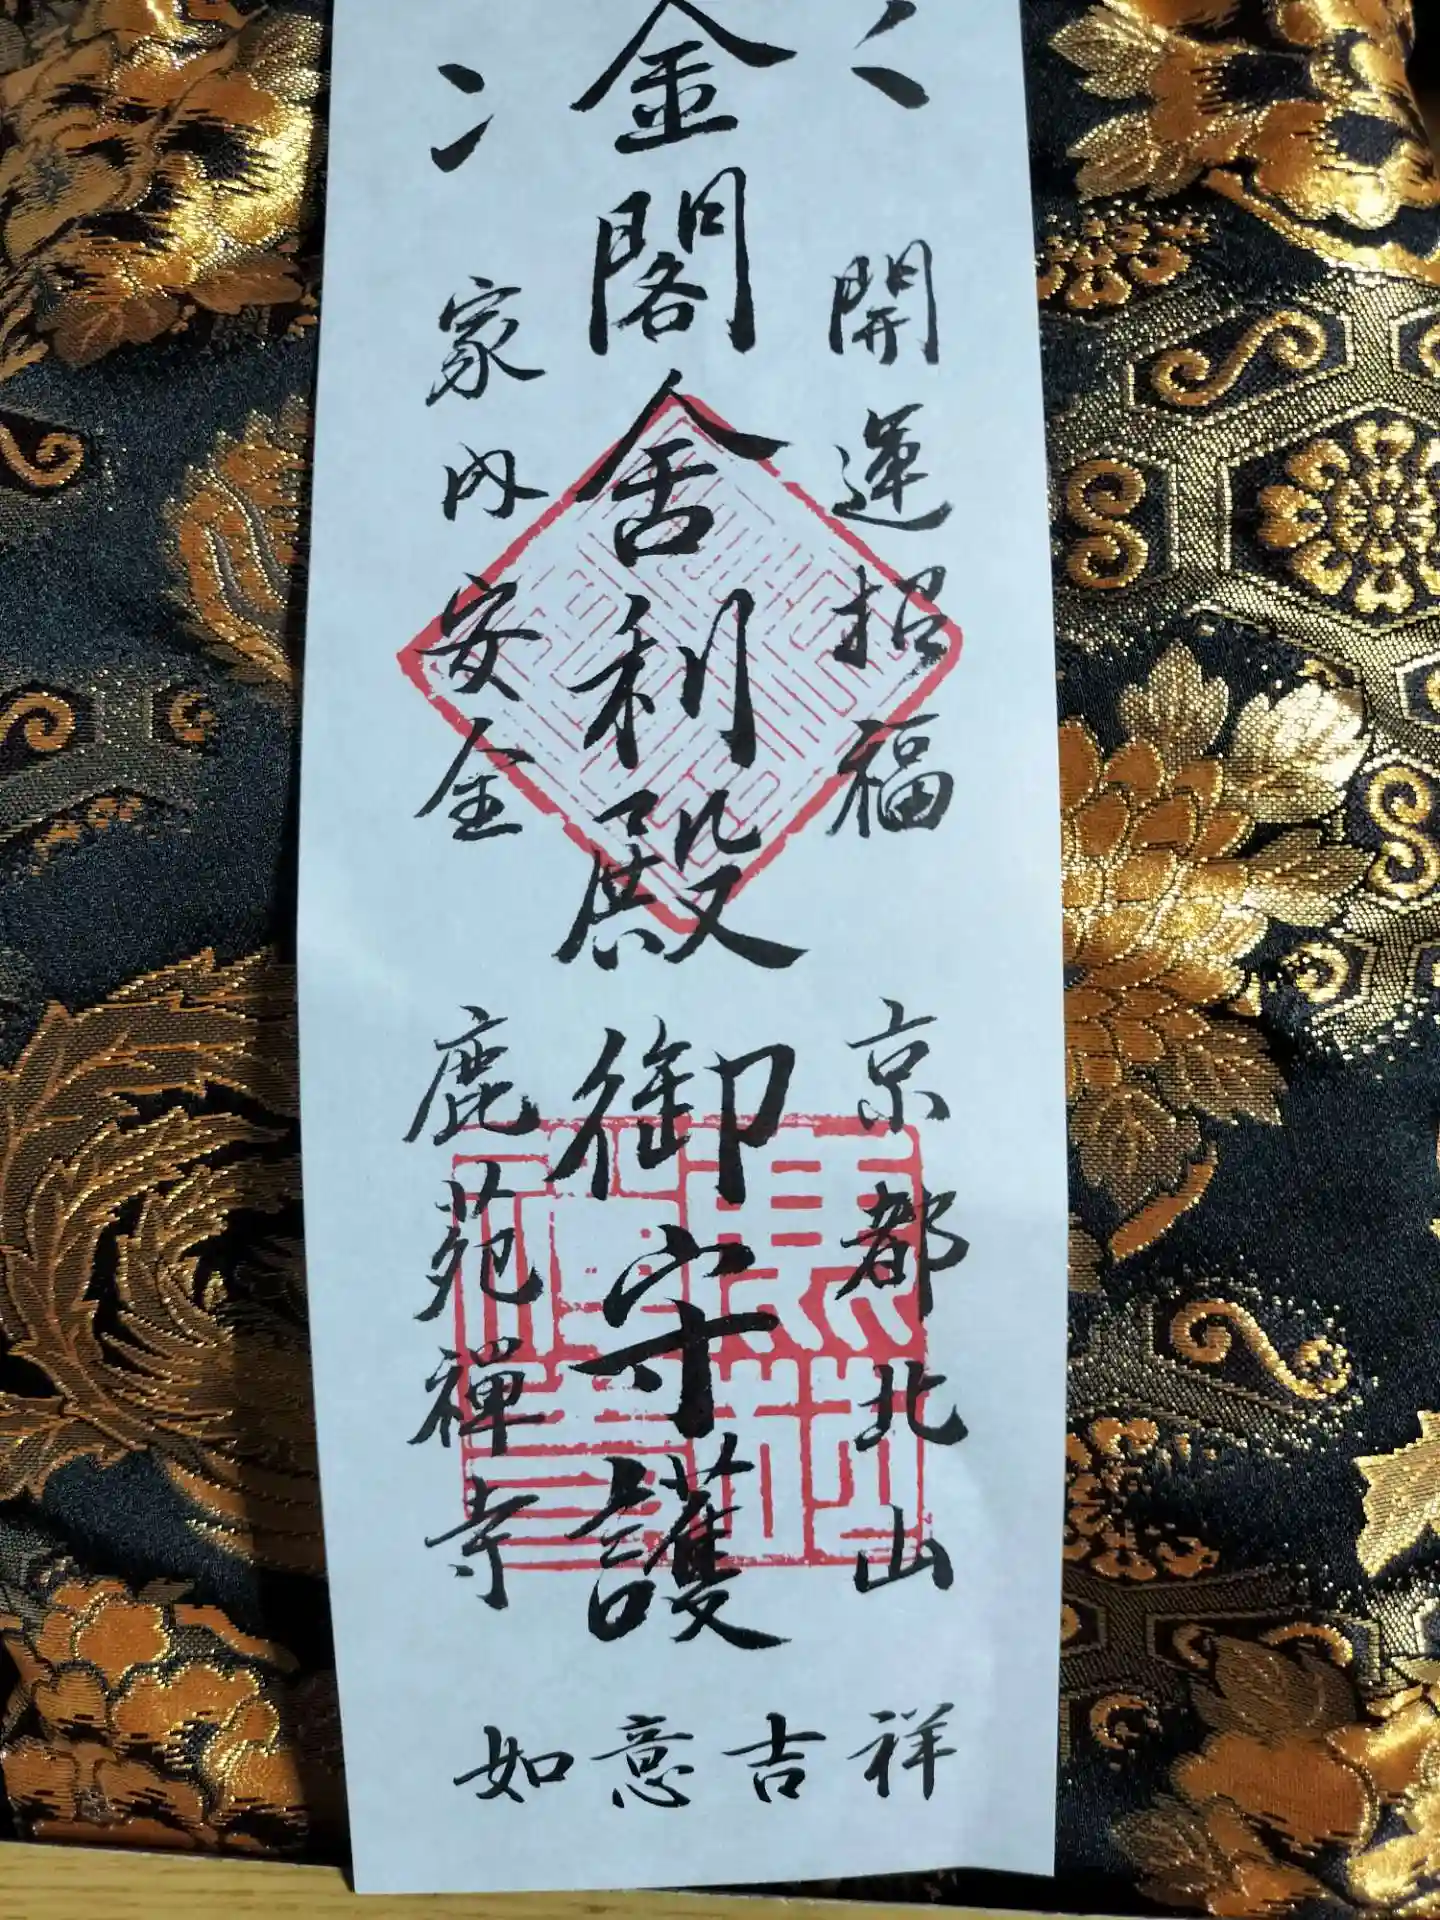 開運招福 京都北山
金閣舍利殿 御守護
家内安全 鹿苑禅寺
如意吉祥